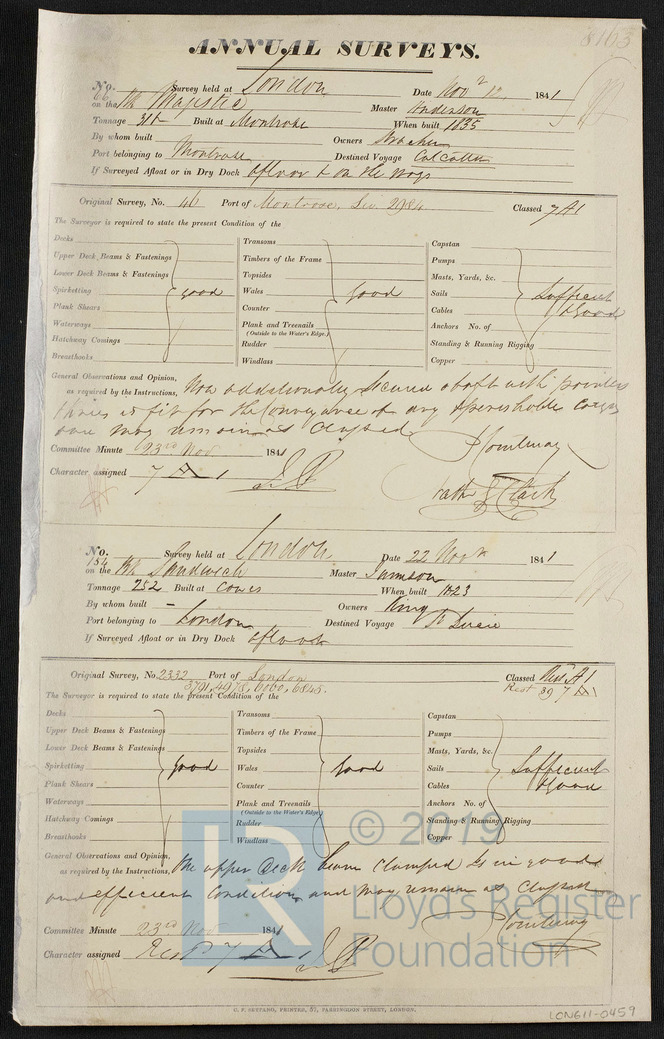 8163
ANNUAL SURVEYS.
No. 66 Survey held at London Date Novr 12 1841
on the Bk Majestic Master Anderson
Tonnage 311 Built at Montrose When built 1835
By whom built Owners
Port belonging to Montrose Destined Voyage Calcutta
If Surveyed Afloat or in Dry Dock afloat & on the ways
Original Survey, No. 46 Port of Montrose, Liv. 2984 Classed 7 A1
The Surveyor is required to state the present Condition of the
Decks Transoms Capstan
Upper Deck Beams & Fastenings Timbers of the Frame Pumps
Lower Deck Beams & Fastenings Topsides Masts, Yards, &c.
Spirketting good Wales Good Sails Sufficient
Plank Shears Counter Cables & Good
Waterways Plank and Treenails Anchors No. of
(Outside to the Water's Edge.)
Hatchway Comings Rudder Standing & Running Rigging
Breasthooks Windlass Copper
General Observations and Opinion, Now additionally secured abaft with pointers
as required by the Instructions, is fit for the Conveyance of any perishable Cargo
and may remain as Classed
Committee Minute 23rd Nov 1841
Character assigned 7 A 1
Nath S Clark
No. 154 Survey held at London Date 22 Novr 1841
on the Bk Sandwich Master Jamson
Tonnage 252 Built at Cowes When built 1823
By whom built - Owners King
Port belonging to London Destined Voyage St Lucie
If Surveyed Afloat or in Dry Dock afloat
Original Survey, No. 2332 Port of London Classed Rest A1
3791, 4978, 6060, 6845. Rest 39 7 A1
The Surveyor is required to state the present Condition of the
Decks Transoms Capstan
Upper Deck Beams & Fastenings Timbers of the Frame Pumps
Lower Deck Beams & Fastenings Topsides Masts, Yards, &c.
Spirketting good Wales Good Sails Sufficient
Plank Shears Counter Cables & Good
Waterways Plank and Treenails Anchors No. of
(Outside to the Water's Edge.)
Hatchway Comings Rudder Standing & Running Rigging
Breasthooks Windlass Copper
General Observations and Opinion, The upper Deck beam Clamped is in good
as required by the Instructions, and efficient Condition and may remain as Classed
Committee Minute 23rd Nov 1841
Character assigned Rest 7 A 1
C. F. SEYFANG, PRINTER, 57, FARRINGDON STREET, LONDON.
LON611-0459
© 2019
LR
Lloyd's Register
Foundation